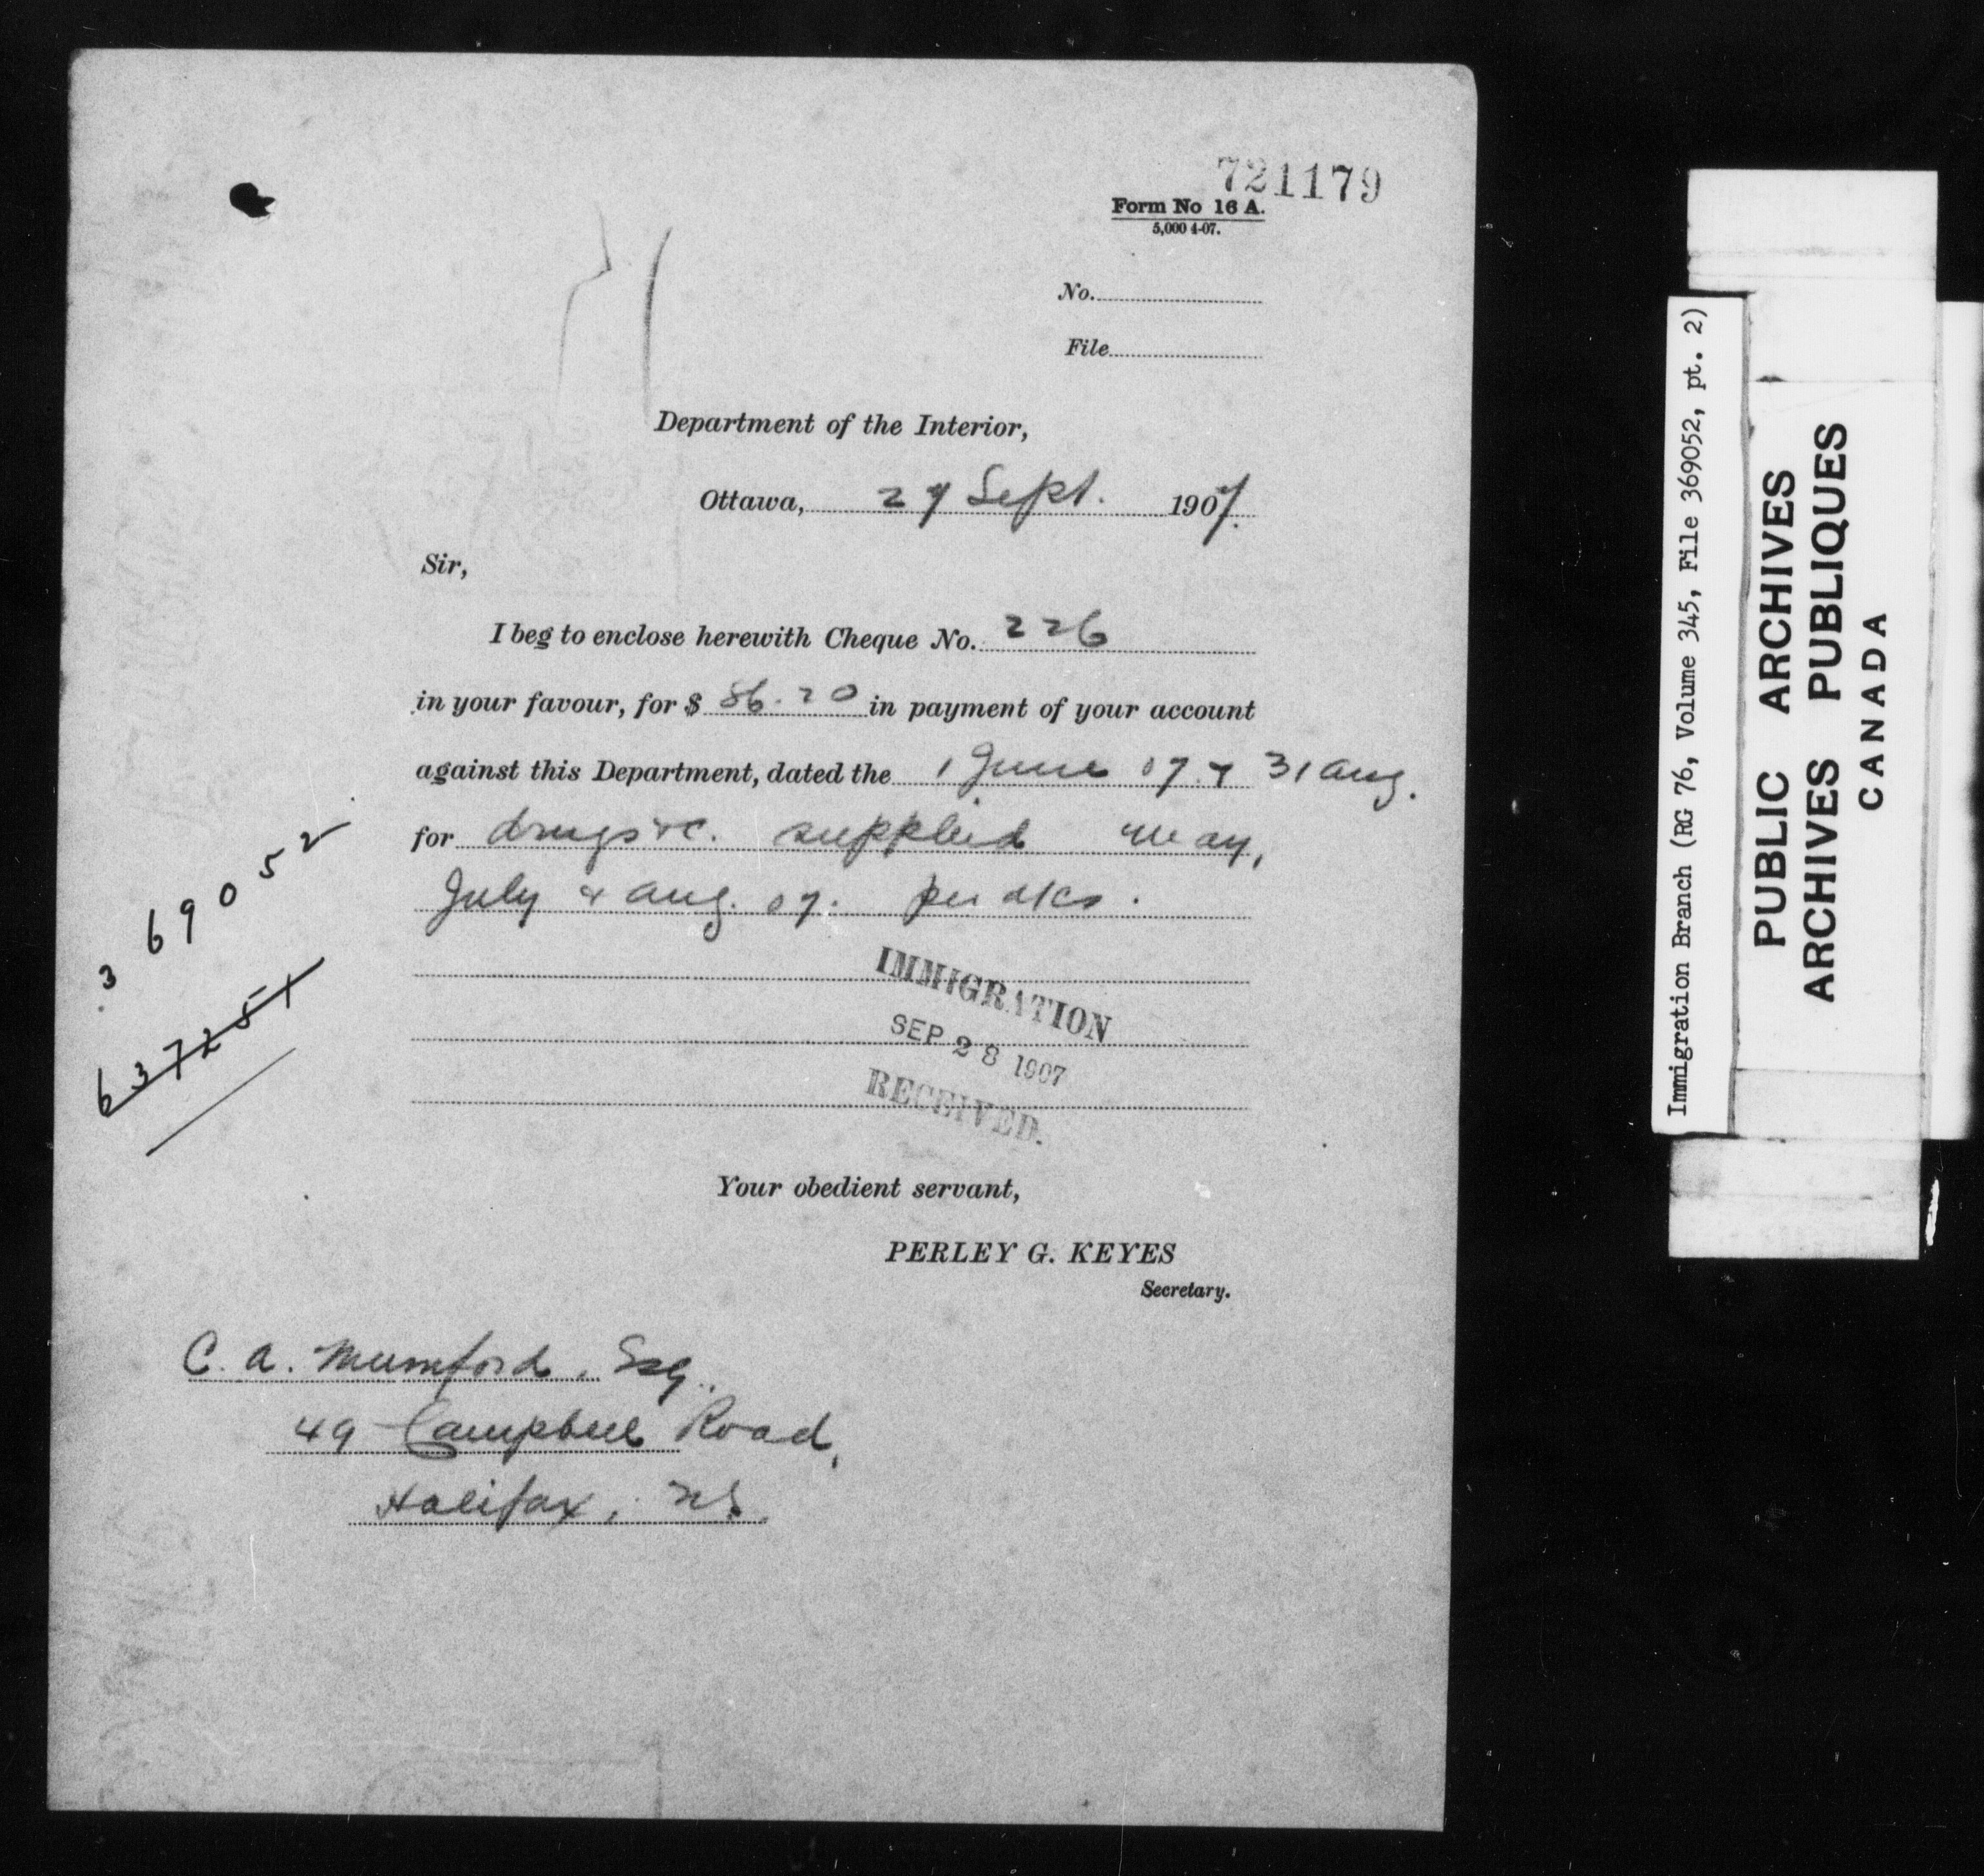 721179
Form No 16 A.
5,000 4-07.
No.
File
Department of the Interior,
Ottawa, 27 Sept. 1907.
Sir,
I beg to enclose herewith Cheque No. 226
in your favour, for $ 86.20 in payment of your account
against this Department, dated the 1 June 07 & 31 Aug.
for drugs &c. supplied May,
July & Aug. 07. per a/cs.
369052
637251
IMMIGRATION
SEP 28 1907
RECEIVED.
Your obedient servant,
PERLEY G. KEYES
Secretary.
C. A. Mumford, Esq.
49 Campbell Road,
Halifax, N.S.
Immigration Branch (RG 76, Volume 345, File 369052, pt. 2)
PUBLIC ARCHIVES
ARCHIVES PUBLIQUES
CANADA